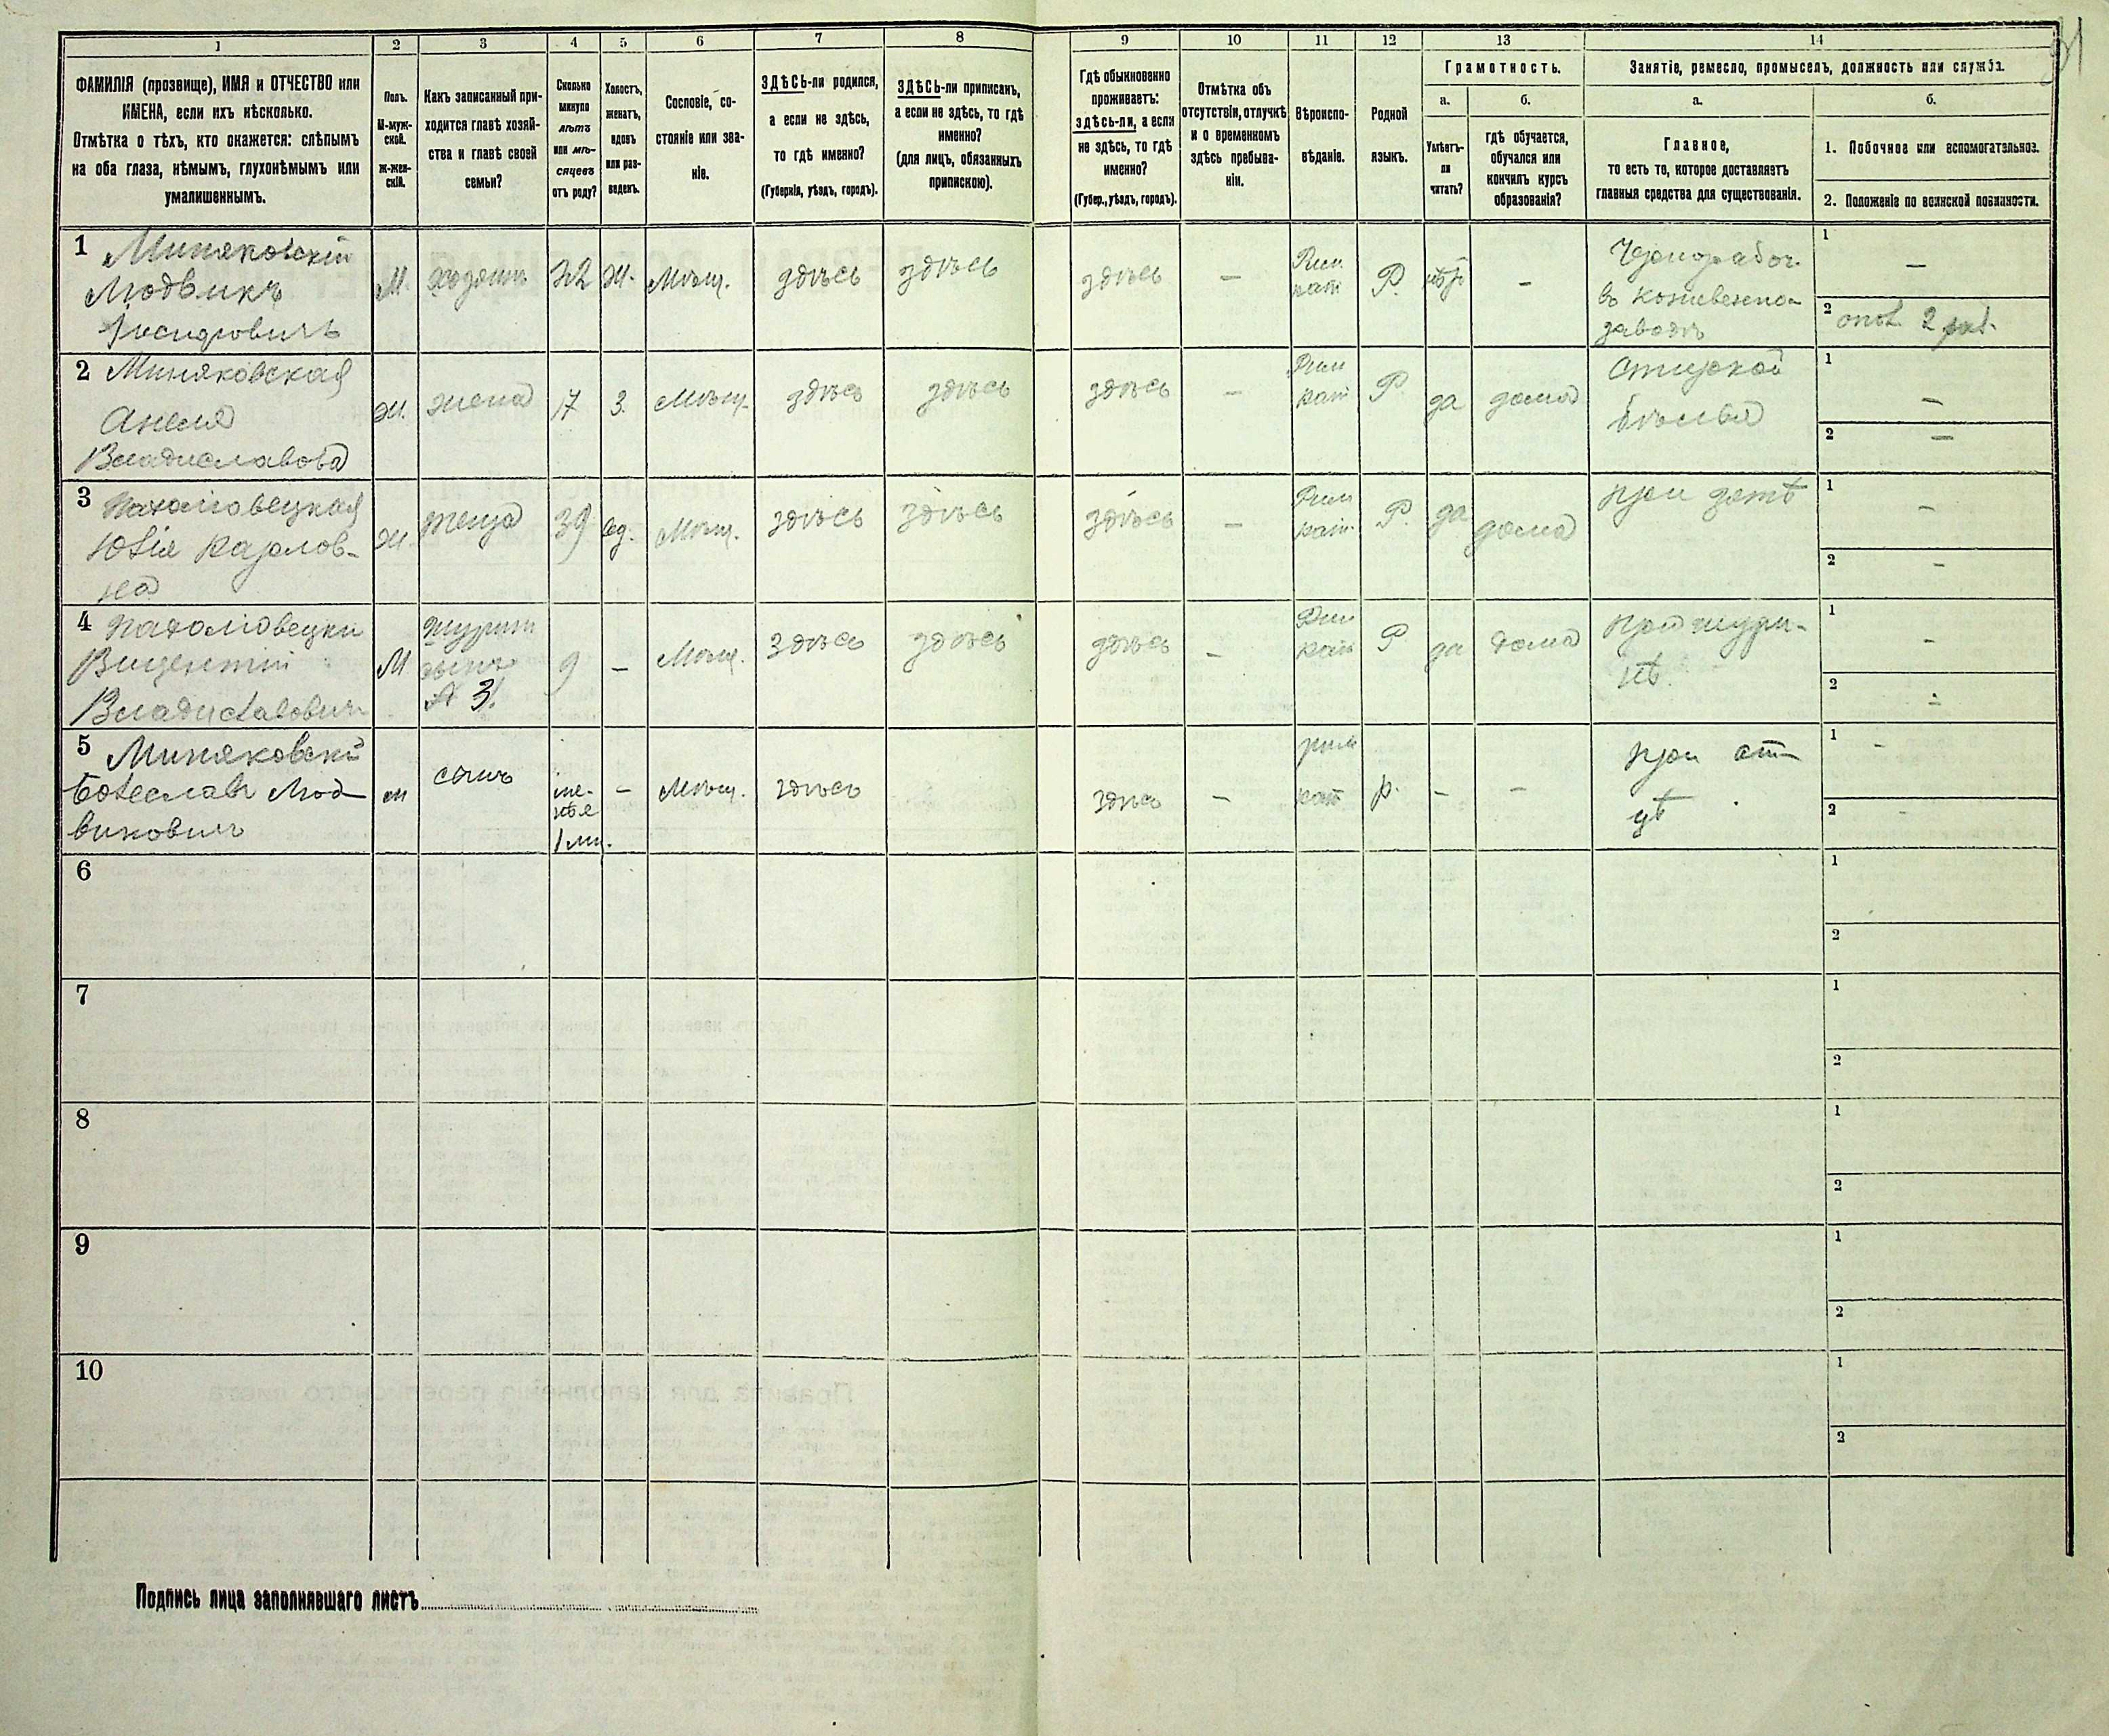 1 2 3 4 5 6 7 8 9 10 11 12 13 14
ФАМИЛІЯ (прозвище), ИМЯ и ОТЧЕСТВО или
ИМЕНА, если ихъ нѣсколько.
Отмѣтка о тѣхъ, кто окажется: слѣпымъ
на оба глаза, нѣмымъ, глухонѣмымъ или
умалишеннымъ.
Полъ.
М-муж-
ской.
Ж-жен-
скій.
Какъ записанный при-
ходится главѣ хозяй-
ства и главѣ своей
семьи?
Сколько
минуло
лѣтъ
или мѣ-
сяцевъ
отъ роду?
Холостъ,
женатъ,
вдовъ
или раз-
веденъ.
Сословіе, со-
стояніе или зва-
ніе.
ЗДѢСЬ-ли родился,
а если не здѣсь,
то гдѣ именно?
(Губернія, уѣздъ, городъ).
ЗДѢСЬ-ли приписанъ,
а если не здѣсь, то гдѣ
именно?
(для лицъ, обязанныхъ
припискою).
Гдѣ обыкновенно
проживаетъ:
здѣсь-ли, а если
не здѣсь, то гдѣ
именно?
(Губер., уѣздъ, городъ).
Отмѣтка объ
отсутствіи, отлучкѣ
и о временномъ
здѣсь пребыва-
ніи.
Вѣроиспо-
вѣданіе.
Родной
языкъ.
Грамотность.
а.
Умѣетъ-
ли
читать?
б.
гдѣ обучается,
обучался или
кончилъ курсъ
образованія?
Занятіе, ремесло, промыселъ, должность или служба.
а.
Главное,
то есть то, которое доставляетъ
главныя средства для существованія.
б.
1. Побочное или вспомогательное.
2. Положеніе по воинской повинности.
1 Миняковскій
Людвикъ
Іосифовичъ
М. хозяинъ 22 ж. Мѣщ. здѣсь здѣсь здѣсь — Рим. кат Р. —
Чернорабоч.
въ кожевенно-
заводѣ
1 —
2
2 Миняковская
Анеля
Владиславова
ж. жена 17 з. Мѣщ. здѣсь здѣсь здѣсь — Рим кат Р. да дома
Стиркой
бѣлья
1 —
2 —
3
Юлія Карлов-
на
ж. теща 39 вд. Мѣщ. здѣсь здѣсь здѣсь — Рим кат. Р. да дома
при зятѣ
1 —
2 —
4
Вицентій
Владиславовичъ
М шуринъ
сынъ
3.
9 — Мѣщ. здѣсь здѣсь здѣсь — Рим кат Р да дома
при шури-
нѣ.
1 —
2 —
5 Миняковскій
Болеславъ Люд-
виковичъ
м сынъ
ме-
нѣе
1 м.
— Мѣщ. здѣсь здѣсь — рим кат р. — —
при от-
цѣ
1 —
2 —
6 1
2
7 1
2
8 1
2
9 1
2
10 1
2
Подпись лица заполнявшаго листъ